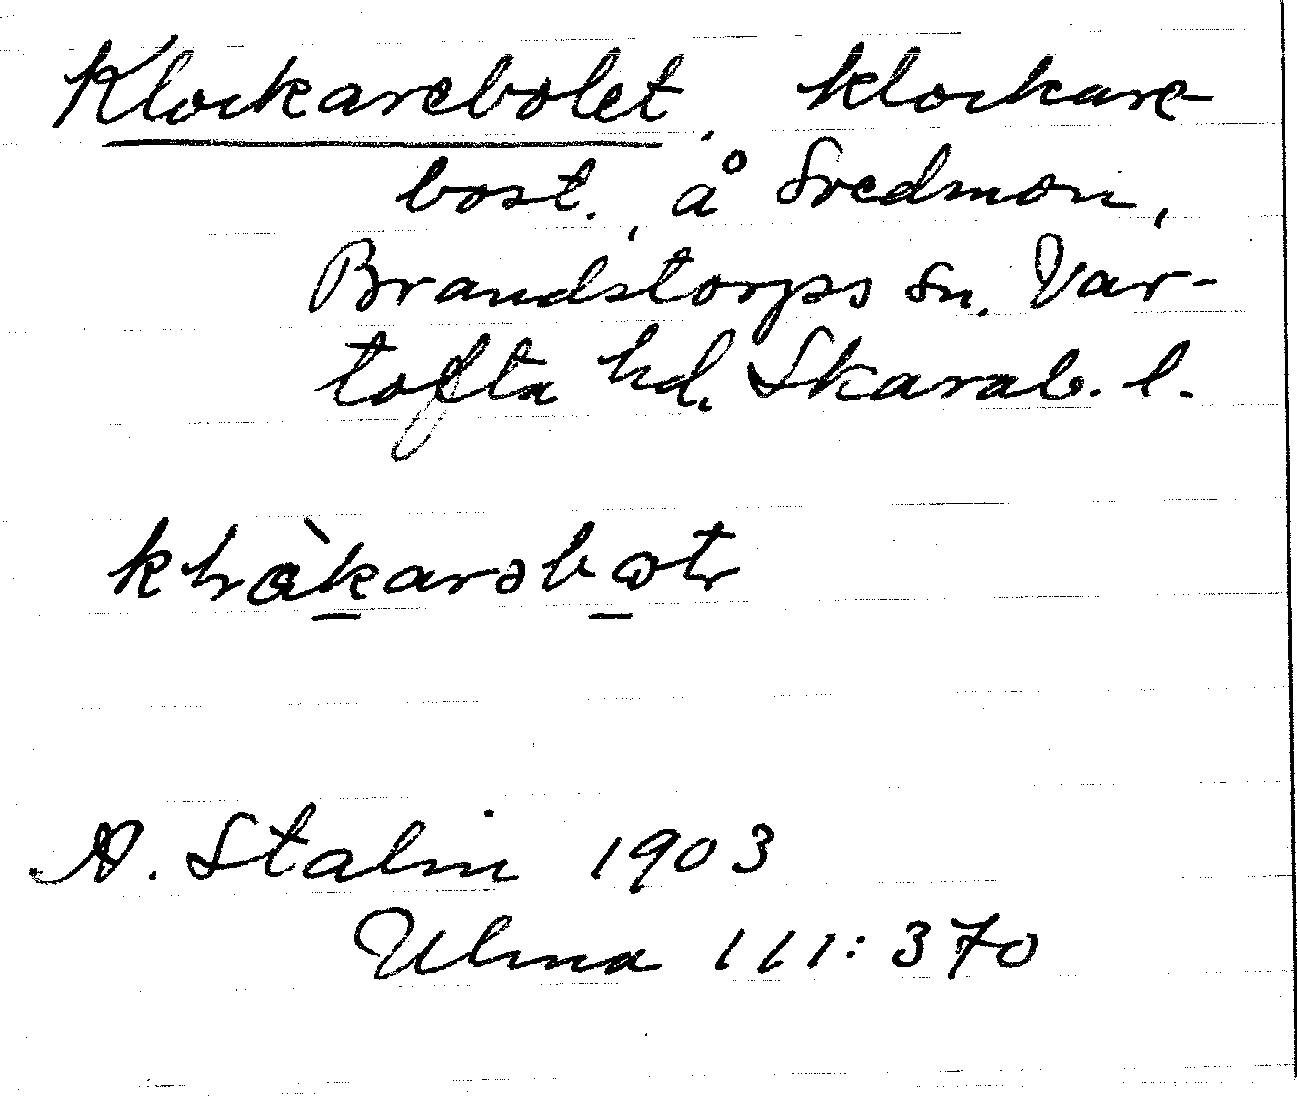 Klockarebolet, klockare-
bost., å Svedmon,
Brandstorps sn. Var-
tofta hd. Skarab. l.
A. Stalin 1903
Ulma 111:370